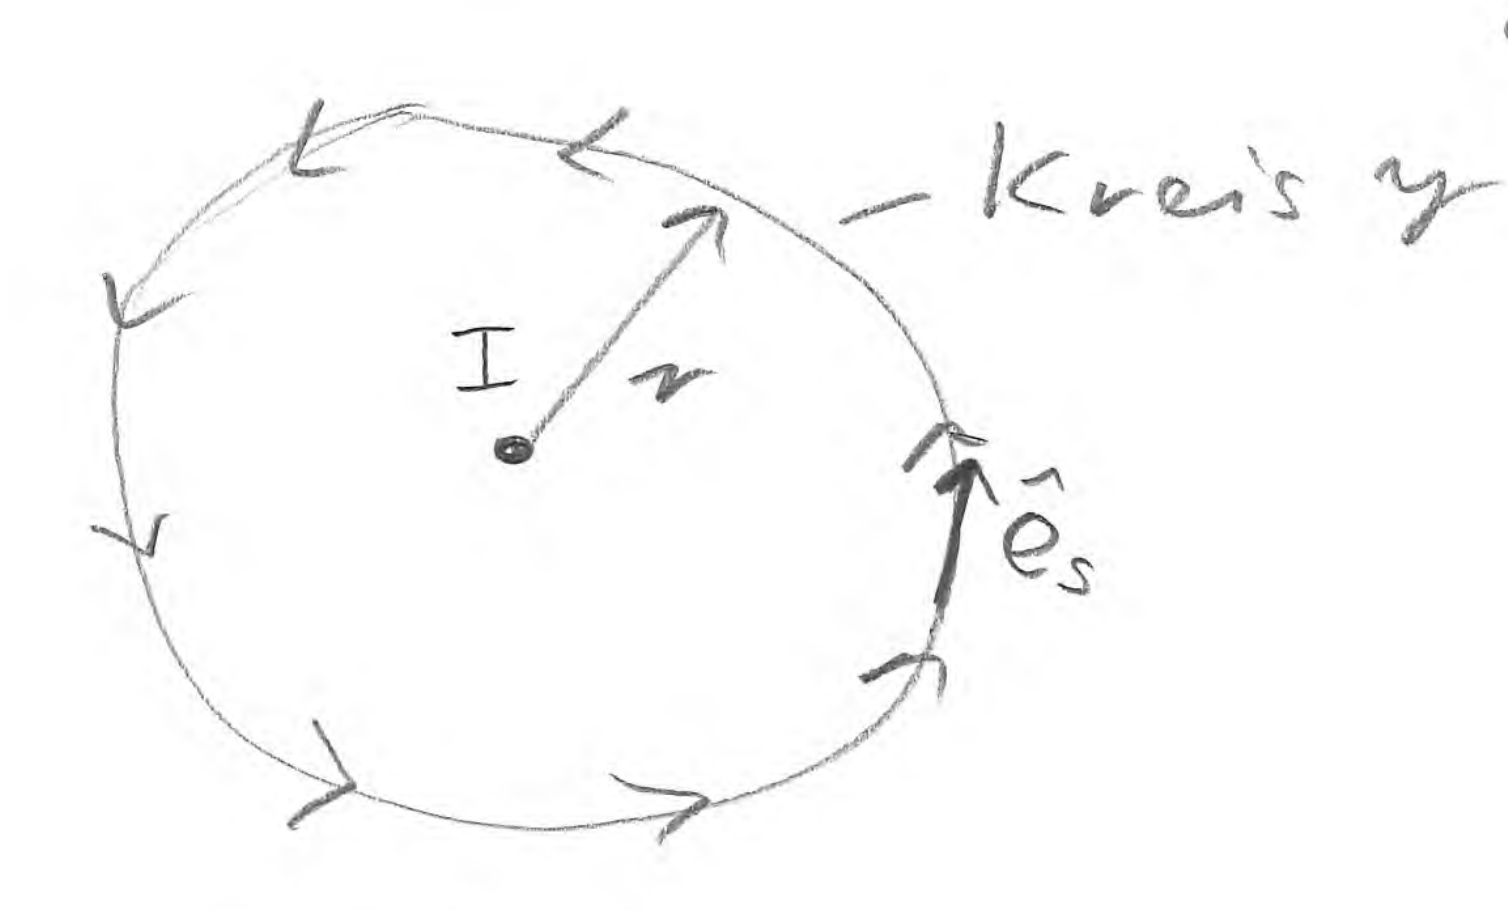 - Kreis γ
I
r
ê_s